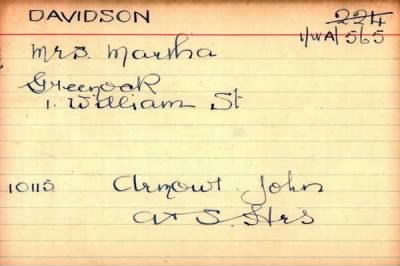 DAVIDSON
224
1/WA/565
Mrs. Martha
Greenock
1. William St
10115 Armour John
A & S. Hrs